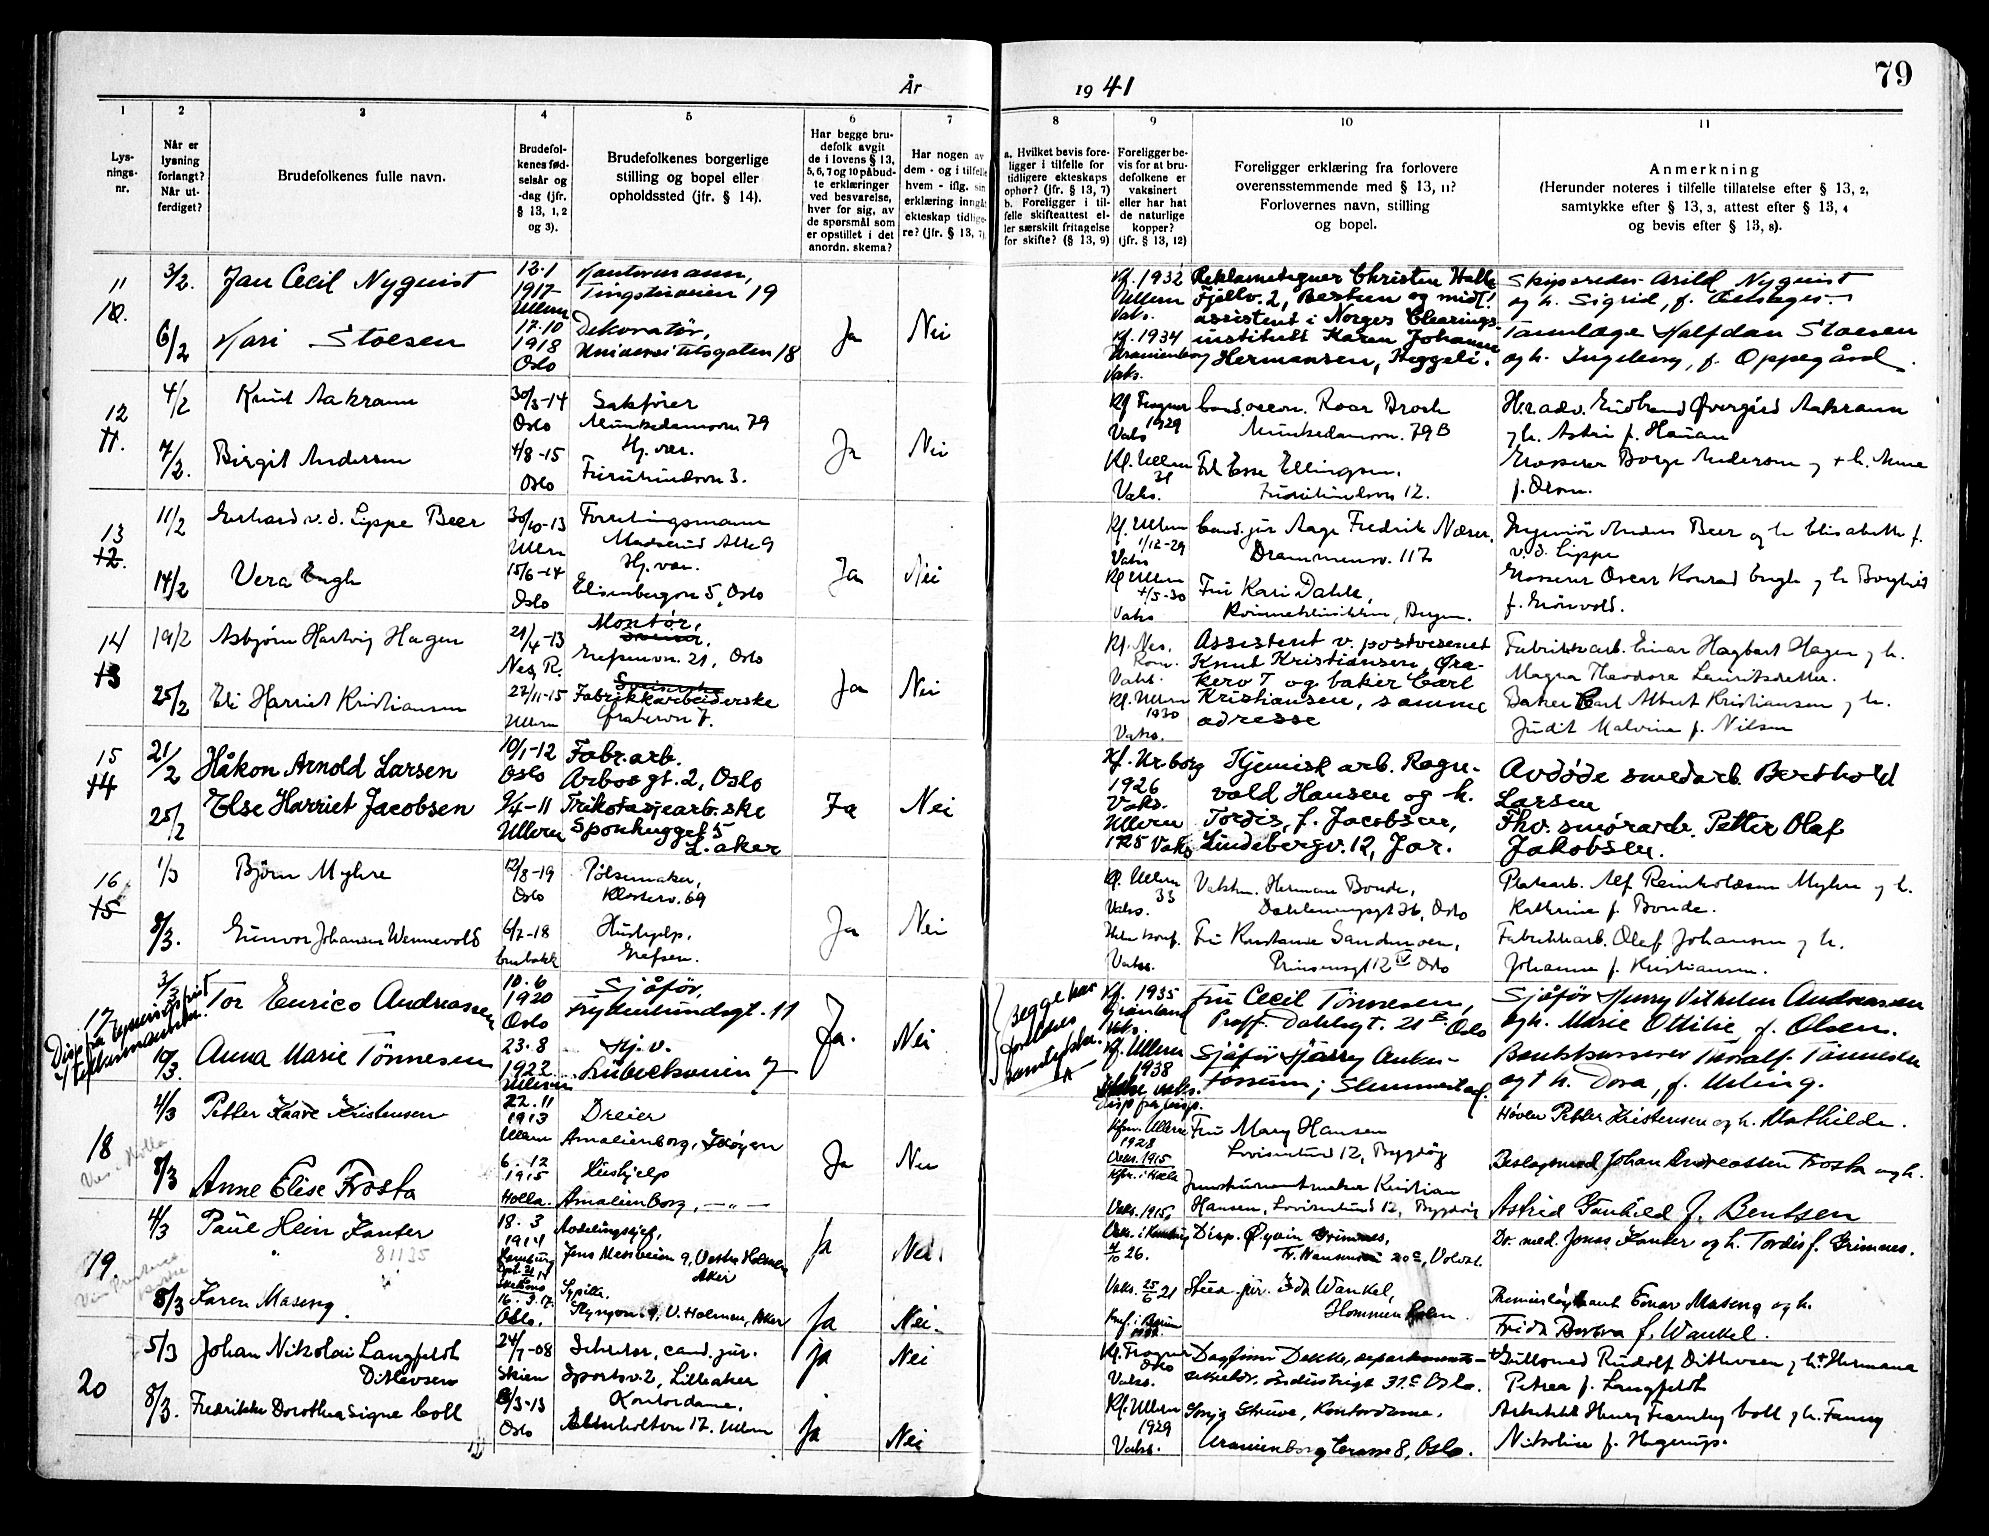 79
År
1941
1
2
3
4
5
6
7
8
9
10
11
Lys-
nings-
nr.
Når er
lysning
forlangt?
Når ut-
ferdiget?
Brudefolkenes fulle navn.
Brudefol-
kenes fød-
selsår og
-dag (jfr.
§ 13, 1, 2
og 3).
Brudefolkenes borgerlige
stilling og bopel eller
opholdssted (jfr. § 14).
Har begge bru-
defolk avgit
de i lovens § 13,
5, 6, 7 og 10 påbud-
te erklæringer
ved besvarelse,
hver for sig, av
de spørsmål som
er opstillet i det
anordn. skema?
Har nogen av
dem - og i tilfelle
hvem - iflg. sin
erklæring inngåt
ekteskap tidlige-
re? (jfr. § 13, 7)
a. Hvilket bevis fore-
ligger i tilfelle for
tidligere ekteskaps
ophør? (jfr. § 13, 7)
b. Foreligger i til-
felle skifteattest el-
ler særskilt fritagelse
for skifte? (§ 13, 9)
Foreligger be-
vis for at bru-
defolkene er
vaksinert
eller har hat
de naturlige
kopper?
(jfr. § 13, 12)
Foreligger erklæring fra forlovere
overensstemmende med § 13, 11?
Forlovernes navn, stilling
og bopel.
Anmerkning
(Herunder noteres i tilfelle tillatelse efter § 13, 2,
samtykke efter § 13, 3, attest efter § 13, 4
og bevis efter § 13, 8).
11
10.
3/2. Jan Cecil Nyquist
12.1
1917
Ullern
Kontormann,
Tingstuveien 19
6/2 Kari Stoesen
17.10
1918
Oslo
Dekoratør,
Universitetsgaten 18
Ja
Nei
Kf. 1932
Ullern
Vaks.
Kf. 1934
Uranienborg
Vaks.
Reklametegner Christen Halle
Fjellv. 2, Bestun og midl.
assistent i Norges Clearings-
institutt Karen Johanne
Hermansen, Heggeli.
Skipsreder Arild Nyquist
og h. Sigrid, f.
Tannlæge Halfdan Stoesen
og h. Ingeborg, f. Oppegård.
12
11.
4/2 Knut Aakrann
30/3-14
Oslo
Sakfører
Munkedamsvn. 79
7/2. Birgit Andersen
4/8-15
Oslo
Hj. vær.
Furulundsvn 3.
Ja
Nei
Kf Frogner
1929
Vaks
Kf. Ullern
31
Vaks.
Cand. oecon. Roar Broch
Munkedamsvn. 79 B
Frk Esse Ellingsen.
Furulundsvn 12.
H.r.adv. Gudbrand Øvergård Aakrann
og h. Astri f. Hauan
Grosserer Borge Andersen og + h. Anna
f. Olsen.
13
12.
11/2 Gerhard v. d. Lippe Beer
30/10-13
Ullern
Forretningsmann
Madserud Alle 9
14/2 Vera Engh
15/6-14
Oslo
Hj. vær.
Elisenbergvn 5, Oslo
Ja
Nei
Kf. Ullern
1/12-29
Vaks
Kf Ullern
4/5-30
Vaks
Cand. jur Aage Fredrik Nærer,
Drammensv. 117
Fru Kari Dahle,
Kvinneklinikken, Bergen.
Ingeniør Anders Beer og h Elisabeth f.
v. d. Lippe
Grosserer Oscar Konrad Engh og h Borghild
f. Grønvold.
14
13
19/2 Asbjørn Hartvig Hagen
21/4-13
Nes, R.
Montør,
Grefsenvn. 21, Oslo
25/2 Eli Harriet Kristiansen
27/11-15
Ullern
Fabrikkarbeiderske
Gratervn 7.
Ja
Nei
Kf. Nes,
Rom.
Vaks.
Kf. Ullern
1930
Vaks.
Assistent v. postvesenet
Knut Kristiansen, Øra-
kero 7 og baker Carl
Kristiansen, samme
adresse
Fabrikkarb. Einar Hagbart Hagen og h.
Magna Theodora Lauritsdatter.
Baker Carl Albert Kristiansen og h.
Judit Malvine f. Nilsen
15
14
21/2 Håkon Arnold Larsen
10/1-12
Oslo
Fabr.arb.
Arbos gt. 2, Oslo
25/2 Else Harriet Jacobsen
9/4-11
Ullern
Trikotasjearb.ske
Sponhugget 5
L. aker
Ja
Nei
Kf. Nr borg
1926
Vaks.
Ullern
1925 Vaks
Kjemisk arb. Ragn-
vald Hansen og h.
Tordis, f. Jacobsen,
Lindebergv. 12, Jar.
Avdøde smedarb. Berthold
Larsen
Fhv. smørarb. Petter Olaf
Jakobsen.
16
15
1/3 Bjørn Myhre
12/8-19
Oslo
Pølsemaker,
Klosterv. 69
8/3. Gunvor Johansen Wennevold
6/7-18
Enebakk
Hushjelp,
Grefsen.
Ja
Nei
Kf. Ullern
33
Vaks.
Vaks.
Vaktm. Herman Bonde,
Dahlenengsgt 36, Oslo
Fru Konstanse Sandmoen,
Prinsensgt 12 IV Oslo
Platearb. Alf Reinholdsen Myhre og h.
Kathrine f. Bonde.
Fabrikkarb. Olef Johansen og h.
Johanne f. Kristiansen.
17
3/3 Tor Enrico Andreassen
10.6
1920
Oslo
Sjåfør,
Frydenlundsgt. 11
10/3. Anna Marie Tønnesen
23.8
1922
Ullern
Hj. v.
Lübeckveien 7
Ja.
Nei
Begge har
foreldres
samtykke.
Kf. 1935
Grønland
Vaks.
Kf. Ullern
1938
Ikke vaks.
Disp fra Lysp.
Fru Cecil Tønnesen,
Proff. Dahlsgt. 21 B Oslo
Sjåfør Harry Anker-
fossum, Slemmestad.
Sjåfør Henry Vilhelm Andreassen
og h. Marie Ottilie f. Olsen.
Bankkasserer Thoralf Tønnesen
og h. Dora, f. Usling.
18
4/3 Petter Kaare Kristensen
22.11
1913
Ullern
Dreier
Amalienborg, Skøyen
8/3 Anne Elise Frosta
6.12
1915
Holla.
Hushjelp
Amalienborg, —"—
Ja
Nei
Kfm. Ullern
1928
Vaks. 1915
Kfm. i Holla
Vaks. 1915,
Fru Mary Hansen
Lovisenlund 12, Bygdøy
Instrumentmaker Kristian
Hansen, Lovisenlund 12, Bygdøy
Høvler Petter Kristensen og h. Mathilde.
Beslagsmed Johan Andreassen Frosta og h.
Astrid Gunhild f. Bentsen
19
4/3 Paul Hein Kanter
81135
18.3
1914
Hamburg
Avdelingssjef,
Jens Messveien 9, Vestre Holmen
Aker
8/3 Karen Maseng.
16.3.17.
Oslo.
V. Holmen, Aker
Ja
Nei.
Ja
Nei.
26.
Disp. Øyvin Grimnes,
Fr. Nansens 20 C, Voldsl.
Vaks. 25/6 21
Stud. jur. Ida Wankel,
Hommenholm.
Dr. med. Jonas Kanter og h. Tordis f. Grimnes.
Einar Maseng og h.
Frida Barbra f. Wankel.
20
5/3 Johan Nikolai Langfeldt
Ditlevsen
24/7-08
Skien
Sekretær, cand. jur.
Sportsv. 2, Lilleaker
8/3. Fredrikke Dorothea Signe Coll
8/3-13
Oslo
Kontordame,
Almeholtvn 17. Ullern
Ja
Nei
Ja
Nei
Kf. Frogner
Oslo
Vaks.
Kf. Ullern
1929
Vaks.
Dagfinn Dekke, departements-
sekretær. Industrigt 31 C Oslo.
Sonja Struve, Kontordame.
Uranienborg terasse 8, Oslo.
+ Gullsmed Rudolf Ditlevsen og h + Hermana
Petrea f. Langfeldt
Arkitekt Henry Fearnley Coll og h. Fanny
Nikoline f. Hagerup.